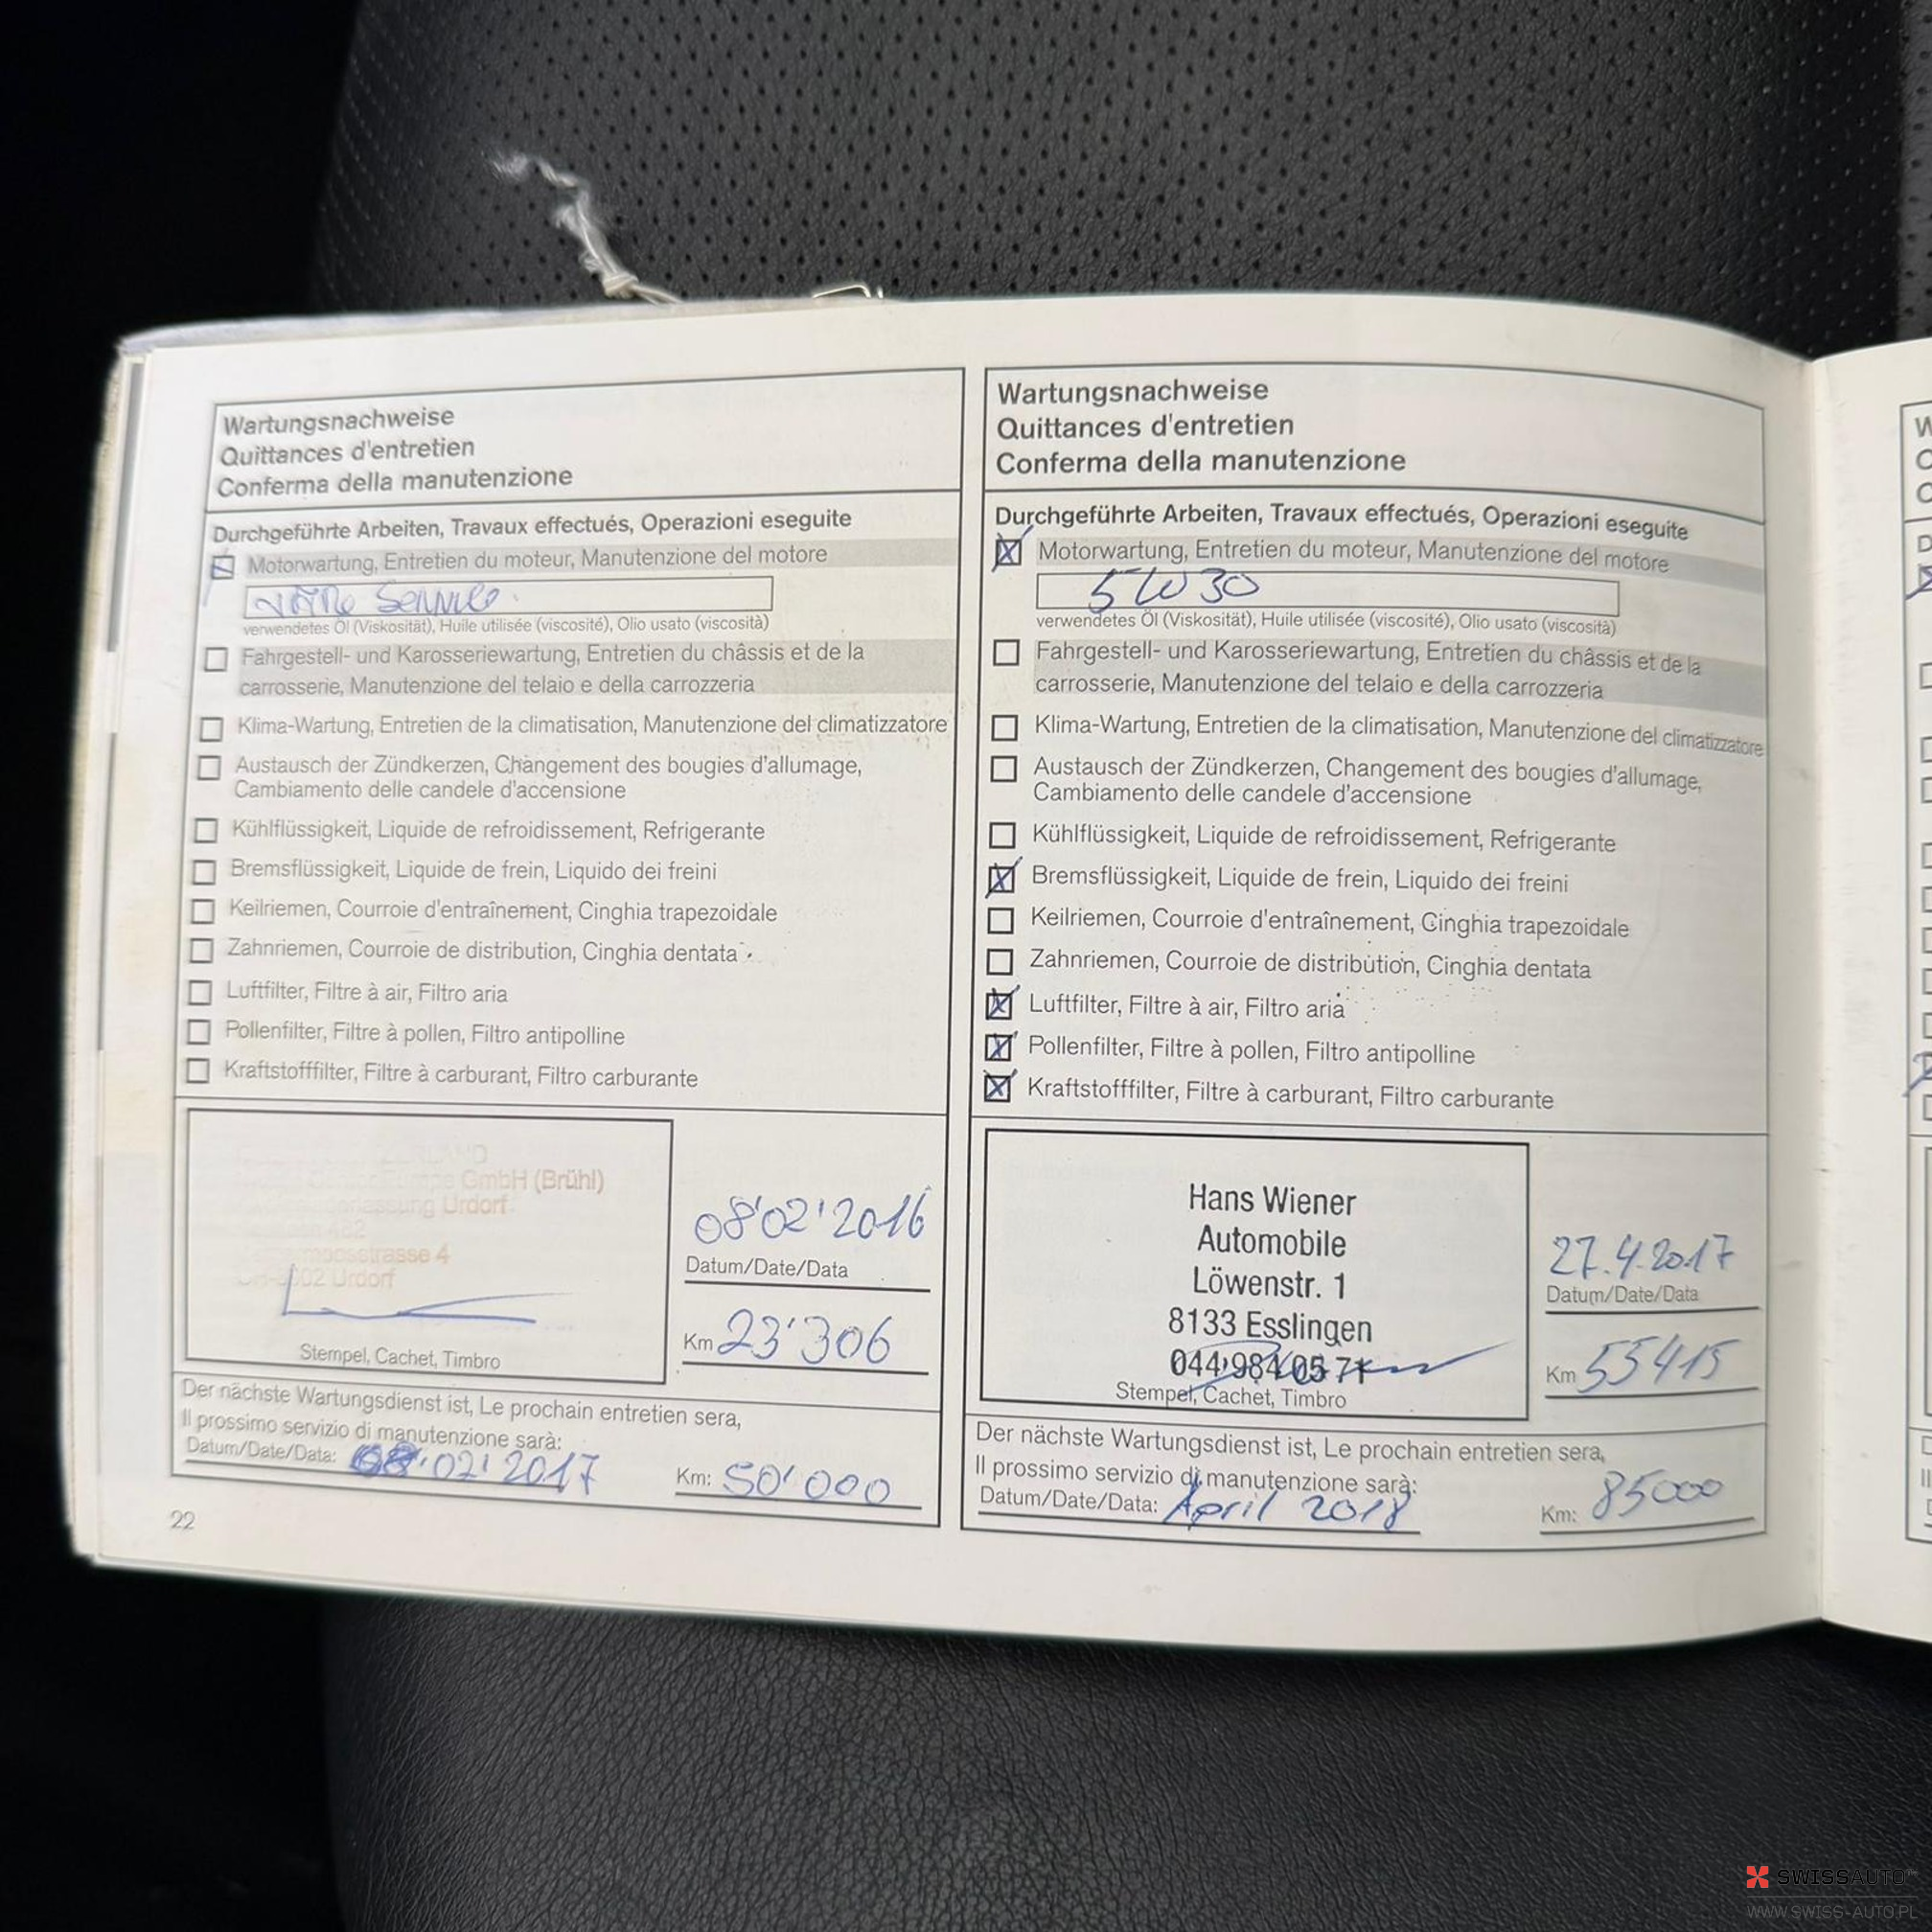 Wartungsnachweise
Quittances d'entretien
Conferma della manutenzione
Durchgeführte Arbeiten, Travaux effectués, Operazioni eseguite
Motorwartung, Entretien du moteur, Manutenzione del motore
verwendetes Öl (Viskosität), Huile utilisée (viscosité), Olio usato (viscosità)
Fahrgestell- und Karosseriewartung, Entretien du châssis et de la
carrosserie, Manutenzione del telaio e della carrozzeria
Klima-Wartung, Entretien de la climatisation, Manutenzione del climatizzatore
Austausch der Zündkerzen, Changement des bougies d'allumage,
Cambiamento delle candele d'accensione
Kühlflüssigkeit, Liquide de refroidissement, Refrigerante
Bremsflüssigkeit, Liquide de frein, Liquido dei freini
Keilriemen, Courroie d'entraînement, Cinghia trapezoidale
Zahnriemen, Courroie de distribution, Cinghia dentata
Luftfilter, Filtre à air, Filtro aria
Pollenfilter, Filtre à pollen, Filtro antipolline
Kraftstofffilter, Filtre à carburant, Filtro carburante
GmbH (Brühl)
Urdorf
4
Urdorf
Stempel, Cachet, Timbro
08'02'2016
Datum/Date/Data
Km 23'306
Der nächste Wartungsdienst ist, Le prochain entretien sera,
Il prossimo servizio di manutenzione sarà:
Datum/Date/Data: 08'02'2017 Km: 50'000
22
Wartungsnachweise
Quittances d'entretien
Conferma della manutenzione
Durchgeführte Arbeiten, Travaux effectués, Operazioni eseguite
Motorwartung, Entretien du moteur, Manutenzione del motore
5W30
verwendetes Öl (Viskosität), Huile utilisée (viscosité), Olio usato (viscosità)
Fahrgestell- und Karosseriewartung, Entretien du châssis et de la
carrosserie, Manutenzione del telaio e della carrozzeria
Klima-Wartung, Entretien de la climatisation, Manutenzione del climatizzatore
Austausch der Zündkerzen, Changement des bougies d'allumage,
Cambiamento delle candele d'accensione
Kühlflüssigkeit, Liquide de refroidissement, Refrigerante
Bremsflüssigkeit, Liquide de frein, Liquido dei freini
Keilriemen, Courroie d'entraînement, Cinghia trapezoidale
Zahnriemen, Courroie de distribution, Cinghia dentata
Luftfilter, Filtre à air, Filtro aria
Pollenfilter, Filtre à pollen, Filtro antipolline
Kraftstofffilter, Filtre à carburant, Filtro carburante
Hans Wiener
Automobile
Löwenstr. 1
8133 Esslingen
044 984 05 71
Stempel, Cachet, Timbro
27.4.2017
Datum/Date/Data
Km 55415
Der nächste Wartungsdienst ist, Le prochain entretien sera,
Il prossimo servizio di manutenzione sarà:
Datum/Date/Data: April 2018 Km: 85000
SWISSAUTO
WWW.SWISS-AUTO.PL